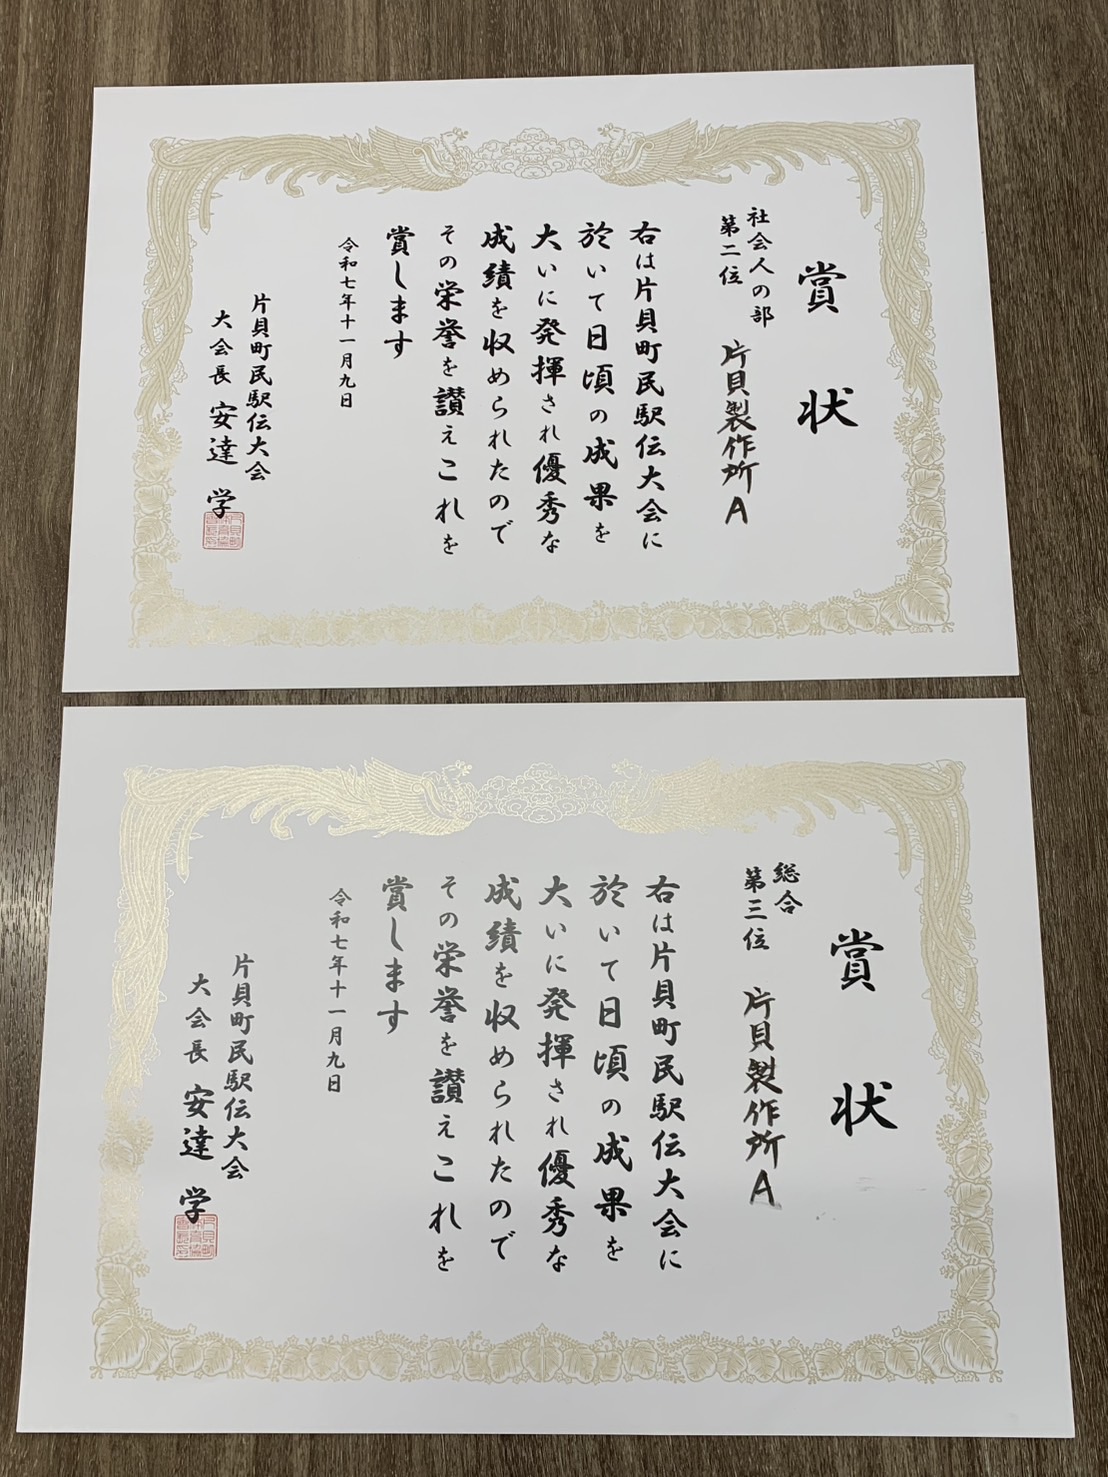 賞状
社会人の部
第二位 片貝製作所A
右は片貝町民駅伝大会に
於いて日頃の成果を
大いに発揮され優秀な
成績を収められたので
その栄誉を讃えこれを
賞します
令和七年十一月九日
片貝町民駅伝大会
大会長 安達 学
賞状
総合
第三位 片貝製作所A
右は片貝町民駅伝大会に
於いて日頃の成果を
大いに発揮され優秀な
成績を収められたので
その栄誉を讃えこれを
賞します
令和七年十一月九日
片貝町民駅伝大会
大会長 安達 学